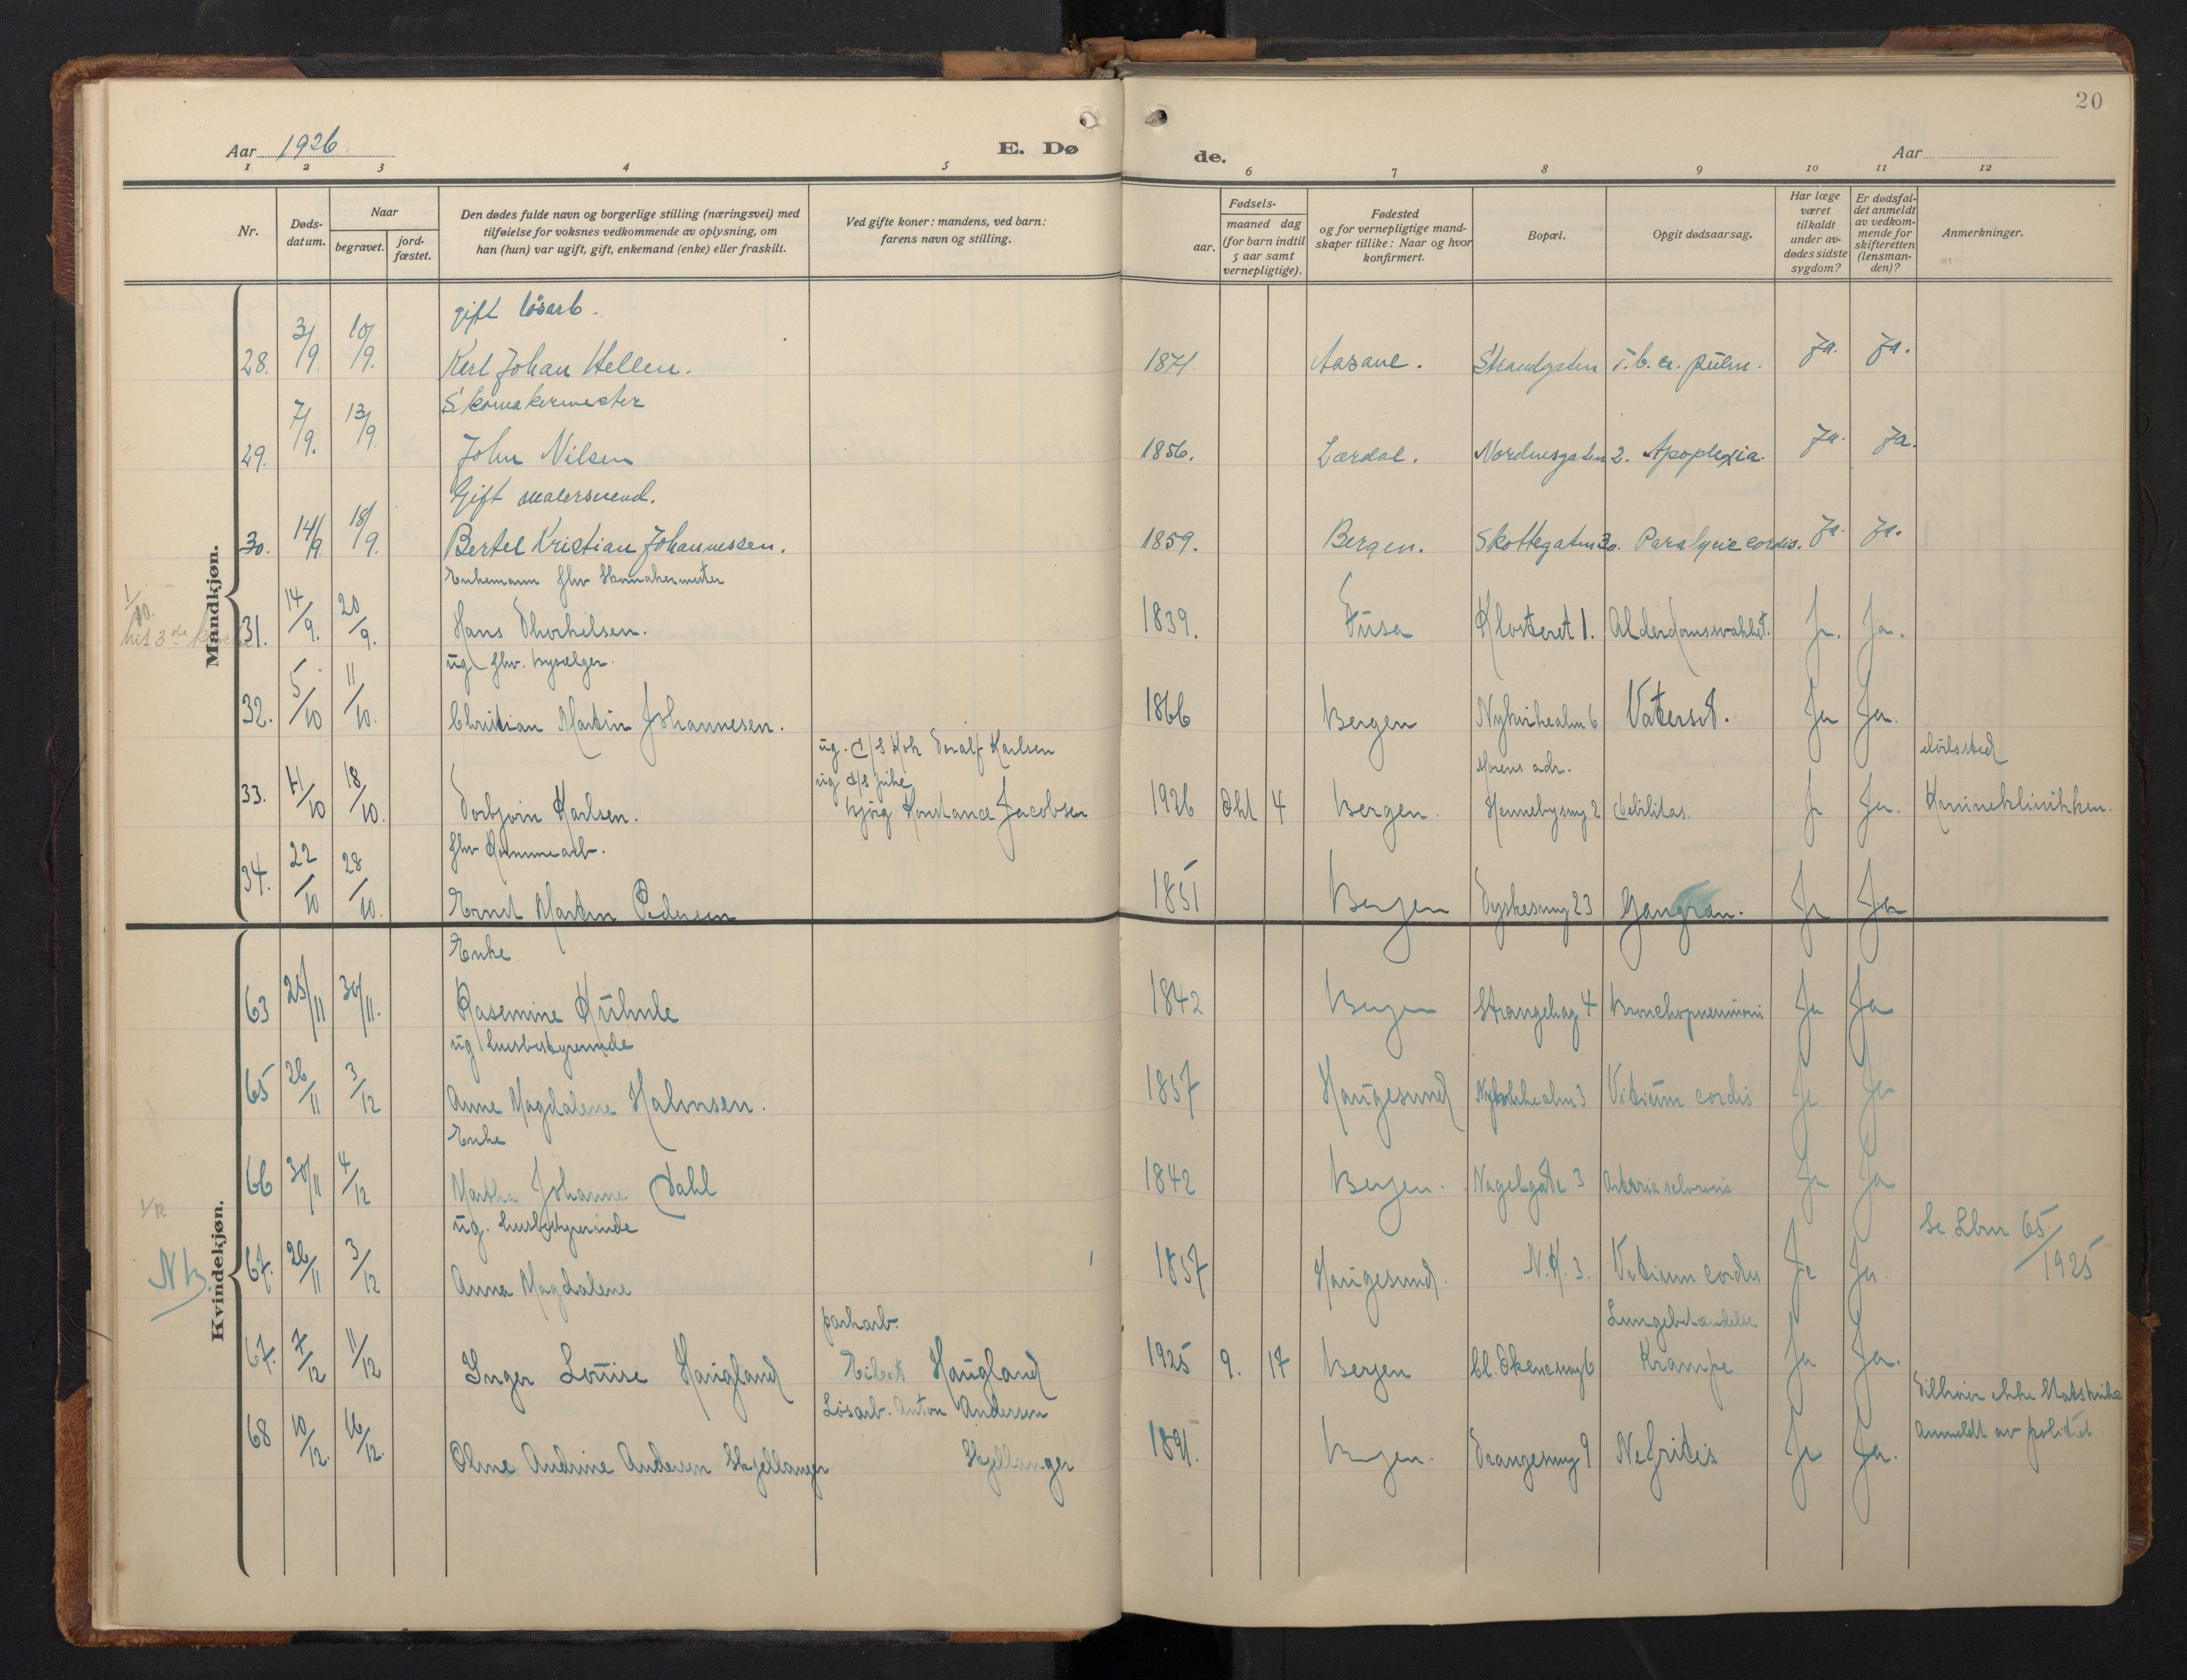 20
Aar 1926.
E. Dø
de.
Aar
1 2 3 4 5 6 7 8 9 10 11 12
Nr.
Døds-
datum.
Naar
begravet.
jord-
fæstet.
Den dødes fulde navn og borgerlige stilling (næringsvei) med
tilføielse for voksnes vedkommende av oplysning, om
han (hun) var ugift, gift, enkemand (enke) eller fraskilt.
Ved gifte koner: mandens, ved barn:
farens navn og stilling.
Fødsels-
aar.
maaned dag
(for barn indtil
5 aar samt
vernepligtige).
Fødested
og for vernepligtige mand-
skaper tillike: Naar og hvor
konfirmert.
Bopæl.
Opgit dødsaarsag.
Har læge
været
tilkaldt
under av-
dødes sidste
sygdom?
Er dødsfal-
det anmeldt
av vedkom-
mende for
skifteretten
(lensman-
den)?
Anmerkninger.
Mandkjøn.
gift løsarb.
28. 3/9 10/9. Karl Johan Hellen. 1871. Aasane. Strandgaten T.b.c. pulm. Ja. Ja.
Skomakermester
29. 7/9. 13/9. John Nilsen 1856. Lærdal. Nordnesgaten 2. Apoplexia. Ja. Ja.
Gift malersvend.
30. 14/9 18/9. Bertel Kristian Johannessen. 1859. Bergen. Skottegaten 30. Paralysie cordis. Ja. Ja.
Enkemann fhv Skomakermester
1/10.
hit 3de
31. 14/9. 20/9. Hans Thorkelsen. 1839. Fusa Klosteret 1. Alderdomssvakhet. Ja. Ja.
ug fhv. bysælger.
32. 5/10 11/10. Christian Martin Johannesen. 1866 Bergen Nykirkealm 6 Vatersot. Ja Ja.
ug. d/s Kok Toralf Karlsen
ug d/s pike
Morens adr.
dödssted
33. 11/10 18/10. Torbjörn Karlsen. Bjørg Konstance Jacobsen 1926 Okt 4 Bergen. Hennebysmg 2 debilitas. Ja Ja. Kvineklinikken.
fhv Kommunearb.
34. 22/10 28/10. Ernst Martin Pedersen 1851 Bergen Dyrkesmg 23 Gangræn. Ja Ja
Kvindekjøn.
Enke
63 25/11 30/11. Rasemine Kühnle 1842 Bergen Strangehag 4 Bronchopneumoni Ja Ja
ug husbestyrerinde
65 26/11 3/12 Anne Magdalene Halvorsen. 1857 Haugesund Nykirkealm 3 Vitium cordis Ja Ja
Enke
66 30/11 4/12 Martha Johanne Dahl 1842 Bergen. Nagelgate 3 Ja Ja
1/12
ug. husbestyrerinde
Se Lbnr 65/1925
NB.
67. 26/11 3/12 Anna Magdalene 1857 Haugesund. N.K. 3. Vitium cordis Ja Ja.
parkarb.
Lungebetændelse
67. 7/12 11/12 Inger Louise Haugland Haugland 1925 9. 17 Bergen Krampe Ja Ja.
Løsarb. Anton Andersen
Tilhører ikke Statskirke
68 10/12. 16/12. Oline Andrine Andersen Skjellanger Skjellanger 1891. Bergen. Trangesmg 9 Nefritis Ja Ja. Anmeldt av politiet.